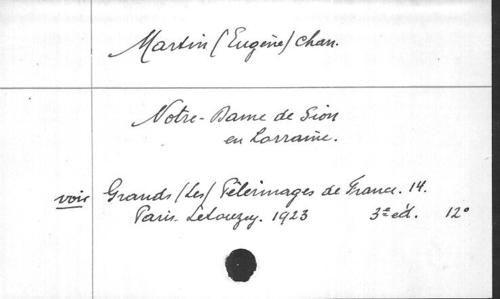 Martin (Eugène) chan.
Notre-Dame de Sion
en Lorraine.
voir Grands (Les) Pèlerinages de France. 14.
Paris. Letouzey. 1923 3e éd. 12°